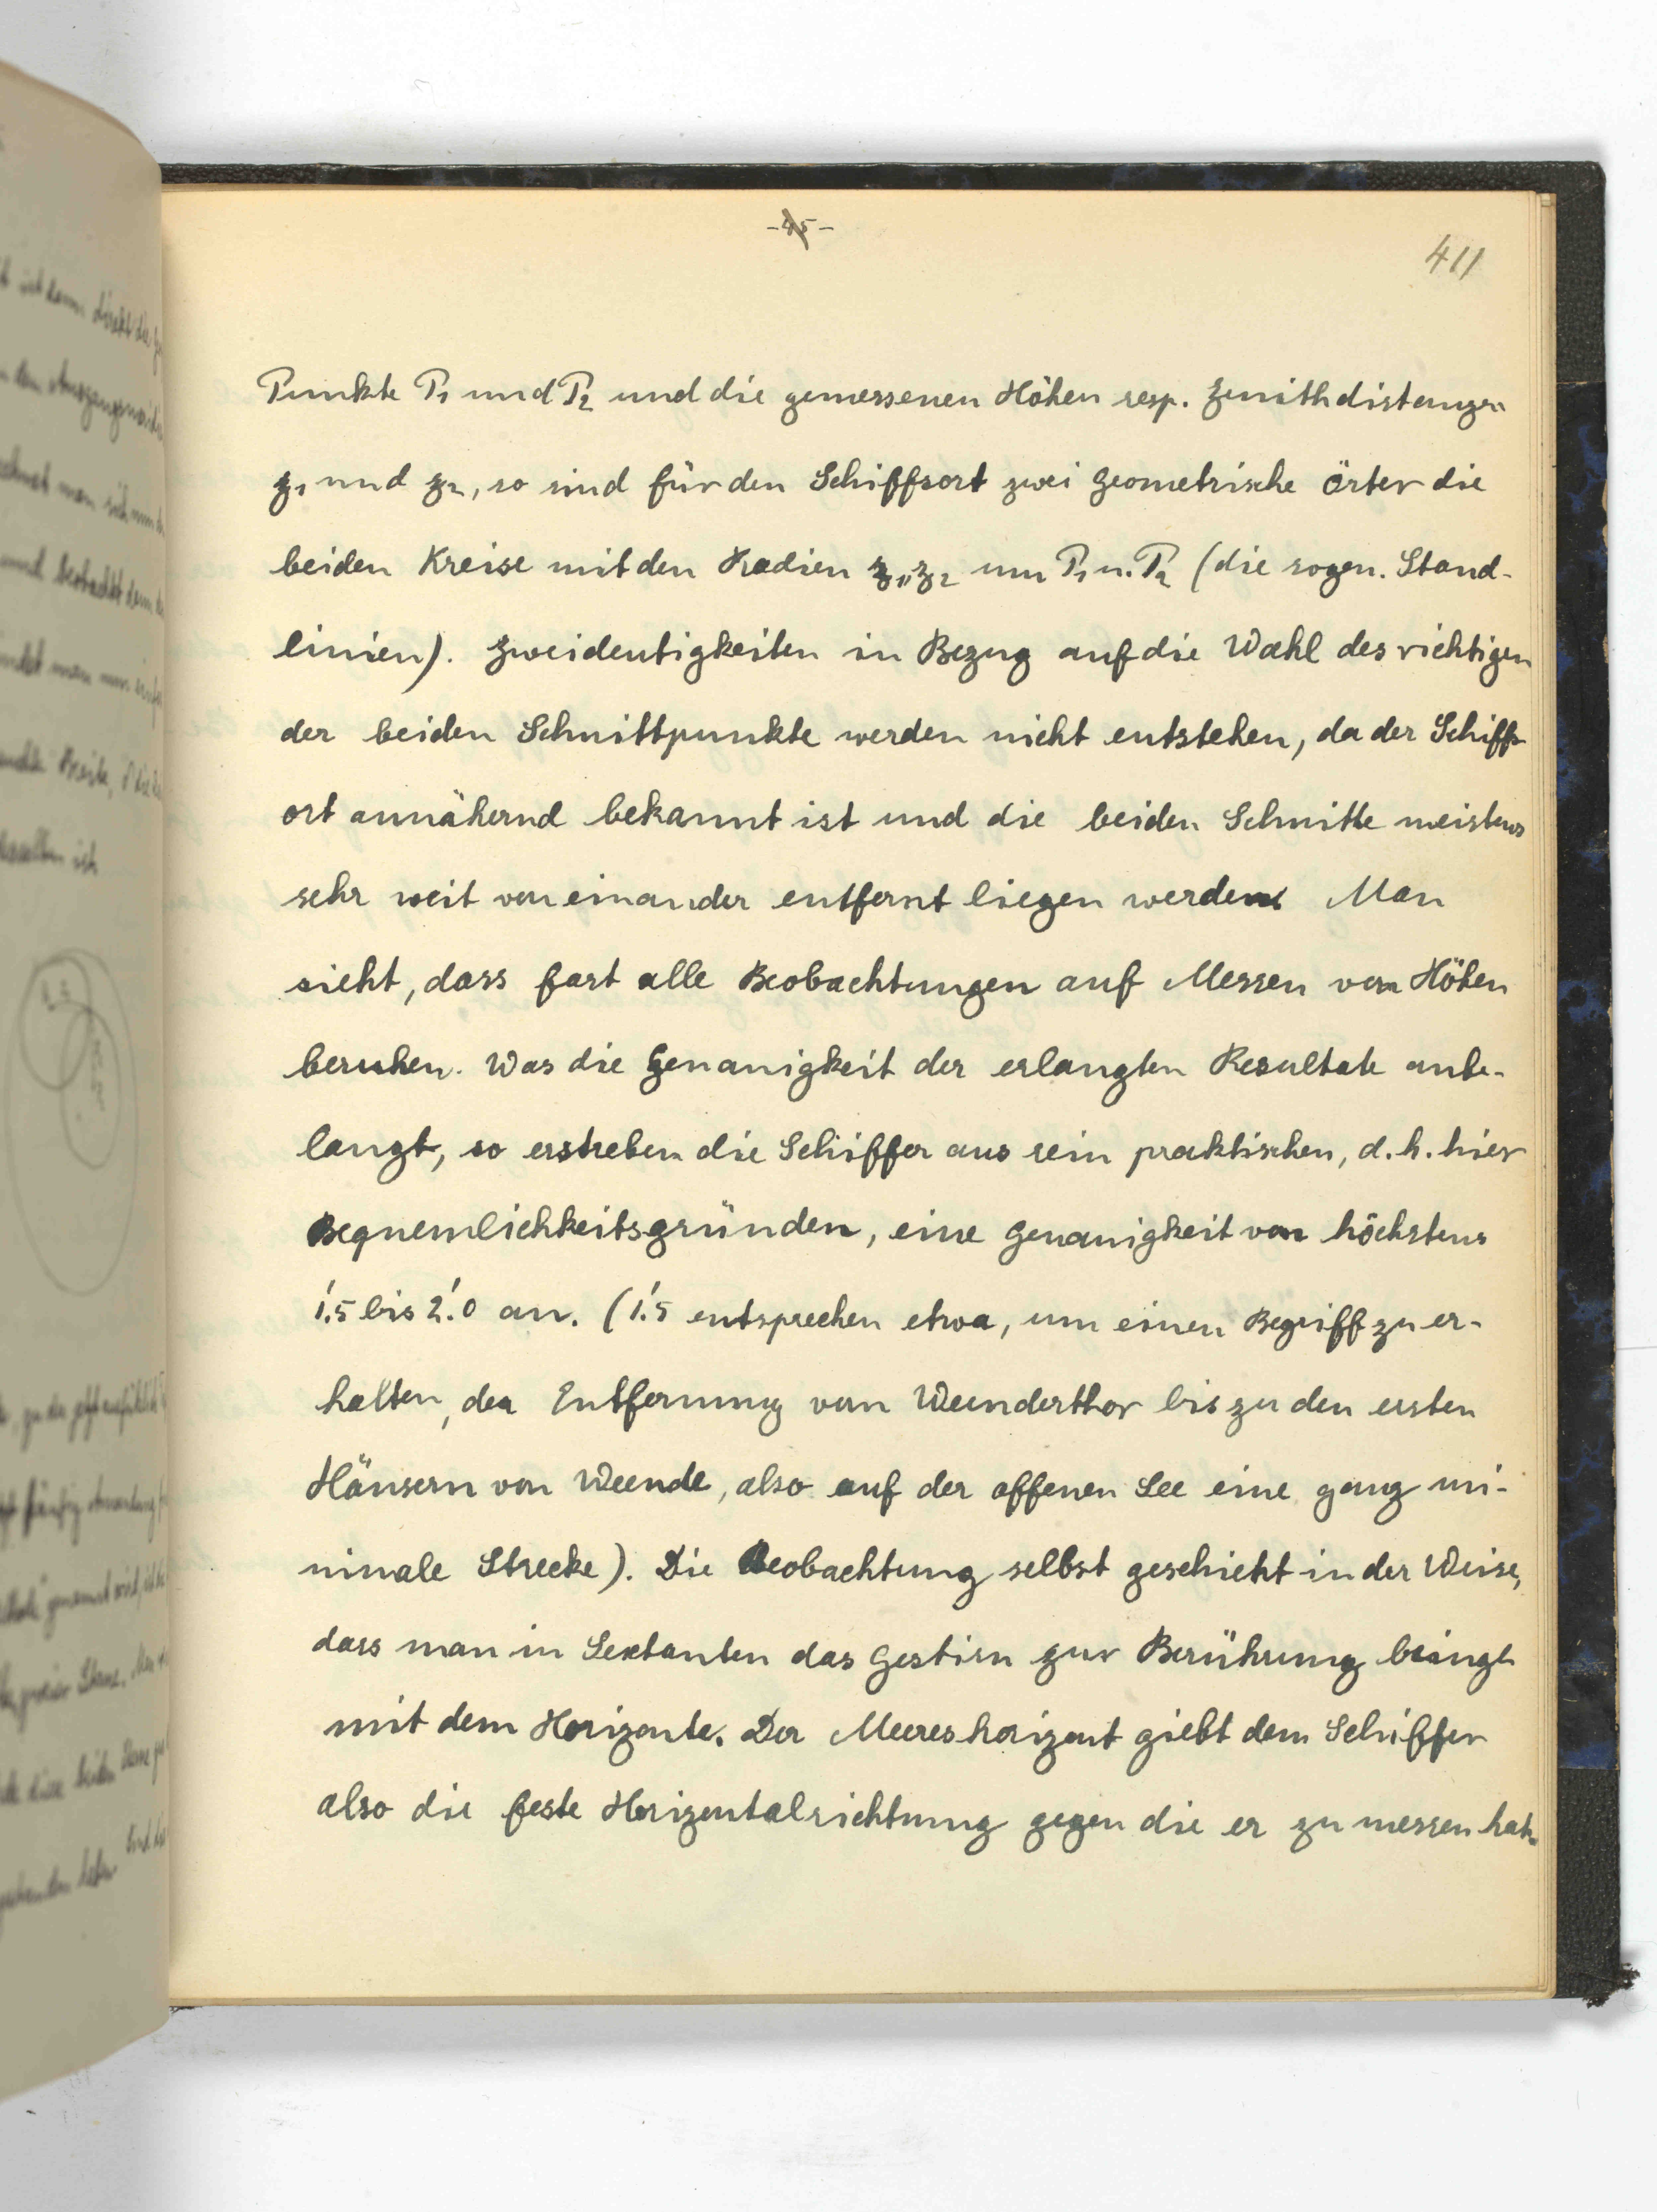 -45-
411
Punkte P₁ und P₂ und die gemessenen Höhen resp. Zenithdistanzen
z₁ und z₂, so sind für den Schiffsort zwei geometrische Örter die
beiden Kreise mit den Radien z₁, z₂ um P₁ u. P₂ (die sogen. Stand-
linien). Zweideutigkeiten in Bezug auf die Wahl des richtigen
der beiden Schnittpunkte werden nicht entstehen, da der Schiffs-
ort annähernd bekannt ist und die beiden Schnitte meistens
sehr weit voneinander entfernt liegen werden. Man
sieht, dass fast alle Beobachtungen auf Messen von Höhen
beruhen. Was die Genauigkeit der erlangten Resultate anbe-
langt, so erstreben die Schiffer aus rein praktischen, d.h. hier
Bequemlichkeitsgründen, eine Genauigkeit von höchstens
1′.5 bis 2′.0 an. (1′.5 entsprechen etwa, um einen Begriff zu er-
halten, der Entfernung vom Weenderthor bis zu den ersten
Häusern von Weende, also auf der offenen See eine ganz mi-
nimale Strecke). Die Beobachtung selbst geschieht in der Weise,
dass man in Sextanten das Gestirn zur Berührung bringt
mit dem Horizonte. Der Meereshorizont giebt dem Schiffer
also die feste Horizontalrichtung gegen die er zu messen hat.